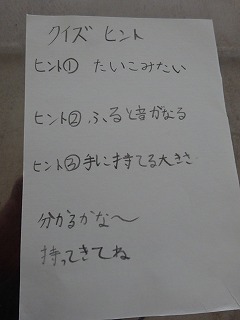 クイズ ヒント
ヒント① たいこみたい
ヒント② ふると音がなる
ヒント③ 手に持てる大きさ
分かるかな〜
持ってきてね